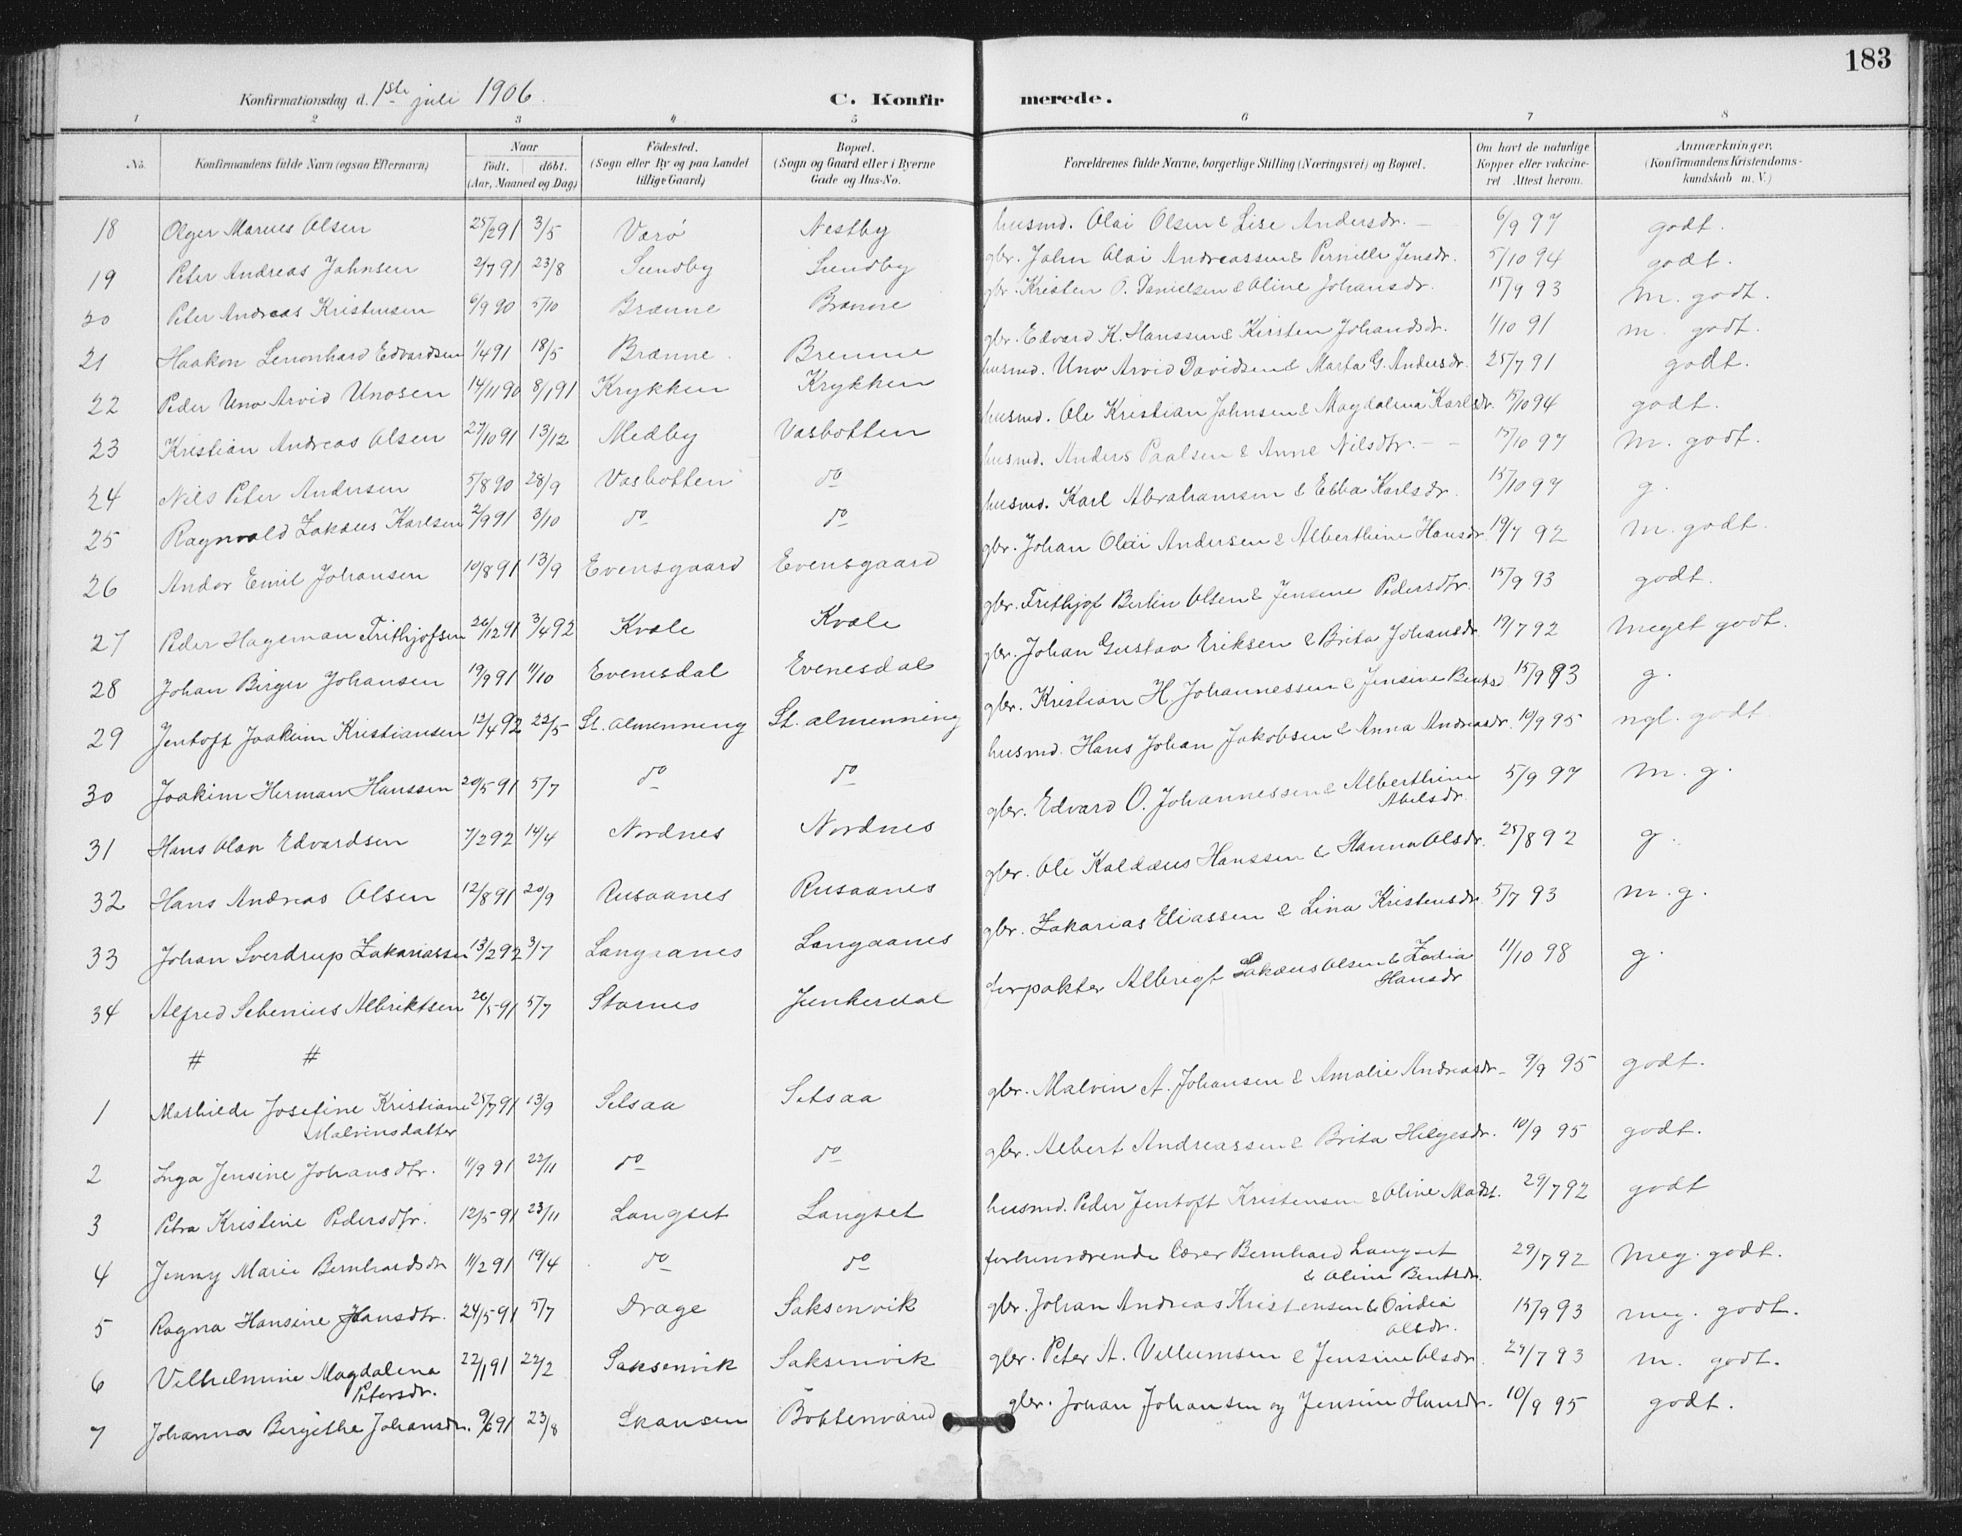 183
Konfirmationsdag d. 1ste juli 1906. C. Konfirmerede.
1 2 3 4 5 6 7 8
No. Konfirmandens fulde Navn (ogsaa Efternavn) Naar født. døbt. (Aar, Maaned og Dag) Fødested. (Sogn eller By og paa Landet tillige Gaard) Bopæl. (Sogn og Gaard eller i Byerne Gade og Hus-No. Forældrenes fulde Navne, borgerlige Stilling (Næringsvei) og Bopæl. Om havt de naturlige Kopper eller vakcineret Attest herom. Anmerkninger. (Konfirmandens Kristendomskundskab m. V.)
18 Olger Marius Olsen 25/2 91 3/5 Værø Nestby husmd. Olai Olsen & Lise Andersdr. 6/9 97 godt.
19 Peter Andreas Jahnsen 2/7 91 23/8 Sundby Sundby gbr. Jahn Olai Andreassen & Pernille Jensdr. 5/10 94 godt.
20 Peter Andreas Kristensen 6/9 90 5/10 Brænne Brænne gbr. Kristen O. Danielsen & Oline Johansdr. 15/9 93 M. godt.
21 Haakon Lenonhard Edvardsen 1/4 91 18/5 Brænne. Brenne gbr. Edvard K. Hanssen & Kirsten Johandsdr. 1/10 91 m. godt.
22 Peder Uno Arvid Unosen 14/11 90 8/1 91 Krykken Krykken husmd. Uno Arvid Davidsen & Marta G. Andersdr. 25/7 91 godt.
23 Kristian Andreas Olsen 27/10 91 13/12 Medby Vasbotten husmd. Ole Kristian Jahnsen & Magdalena Karlsdr. 15/10 94 godt.
24 Nils Peter Andersen 5/8 90 28/9 Vasbotten do husmd. Anders Paalsen & Anne Nilsdtr. 15/10 97 M. godt.
25 Ragnvald Zakæus Karlsen 2/9 91 3/10 do do husmd. Karl Abrahamsen & Ebba Karlsdr. 15/10 97 g.
26 Andor Emil Johansen 10/8 91 13/9 Evensgaard Evensgaard gbr. Johan Olai Andersen & Alberthine Hansdr. 19/7 92 M. godt.
27 Peder Hageman Frithjofsen 26/12 91 3/4 92 Kvæle Kvæle gbr. Frithjof Berlin Olsen & Jensine Pedersdtr. 15/9 93 godt.
28 Johan Birger Johansen 19/9 91 11/10 Evenesdal Evenesdal gbr. Johan Gustav Eriksen & Brita Johansdr. 19/7 92 Meget godt.
29 Jentoft Joakim Kristiansen 12/4 92 22/5 St. almenning St. almenning gbr. Kristian H. Johannessen & Jensine Bentsd 15/9 93 g.
30 Joakim Herman Hanssen 20/5 91 5/7 do do husmd. Hans Johan Jakobsen & Anna Andreasdr. 10/9 95 ngl. godt
31 Hans Olav Edvardsen 7/2 92 14/4 Nordnes Nordnes gbr. Edvard O. Johannessen & Alberthine Abelsdr. 5/9 97 M. g.
32 Hans Andreas Olsen 12/8 91 20/9 Rusaanes Rusaanes gbr. Ole Kaldæus Hanssen & Hanna Olsdr. 25/8 92 g.
33 Johan Sverdrup Zakariassen 13/2 92 3/7 Langaanes Langaanes gbr. Zakarias Eliassen & Lina Kristensdr. 5/7 93 m. g.
34 Alfred Sebenius Albriktsen 26/5 91 5/7 Stornes Junkerdal forpakter Albrigt Zakæus Olsen & Zadia Hansdr 11/10 98 g.
# #
1 Mathilde Josefine Kristiane Malvinsdatter 25/7 91 13/9 Setsaa Setsaa gbr. Malvin A. Johansen & Amalie Andreasdr. 9/9 95 godt.
2 Inga Jensine Johansdtr. 11/9 91 22/11 do do gbr. Albert Andreassen & Brita Helgesdr. 10/9 95 godt.
3 Petra Kristine Pedersdtr. 12/5 91 23/11 Langset Langset husmd. Peder Jentoft Kristensen & Oline Madst. 29/7 92 godt
4 Jenny Marie Bernhardsdr 11/2 91 19/4 do do forhenværende lærer Bernhard Langset & Oline Bentsdr. 29/7 92 Meg. godt.
5 Ragna Hansine Hansdtr. 24/5 91 5/7 Drage Saksenvik gbr. Johan Andreas Kristensen & Ovidia Olsdr. 15/9 93 meg. godt.
6 Vilhelmine Magdalena Petersdr. 22/1 91 22/2 Saksenvik Saksenvik gbr. Peter A. Villumsen & Jensine Olsdr. 29/7 93 m. godt.
7 Johanna Birgithe Johansdr. 9/6 91 23/8 Skansen Bottenvand gbr. Johan Johansen og Jensine Hansdr. 10/9 95 godt.